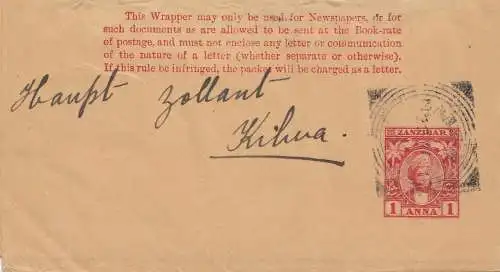 This Wrapper may only be used for Newspapers, or for
such documents as are allowed to be sent at the Book-rate
of postage, and must not enclose any letter or communication
of the nature of a letter (whether separate or otherwise).
If this rule be infringed, the packet will be charged as a letter.
Haupt zollamt
Kilwa.
ZANZIBAR
1 ANNA 1